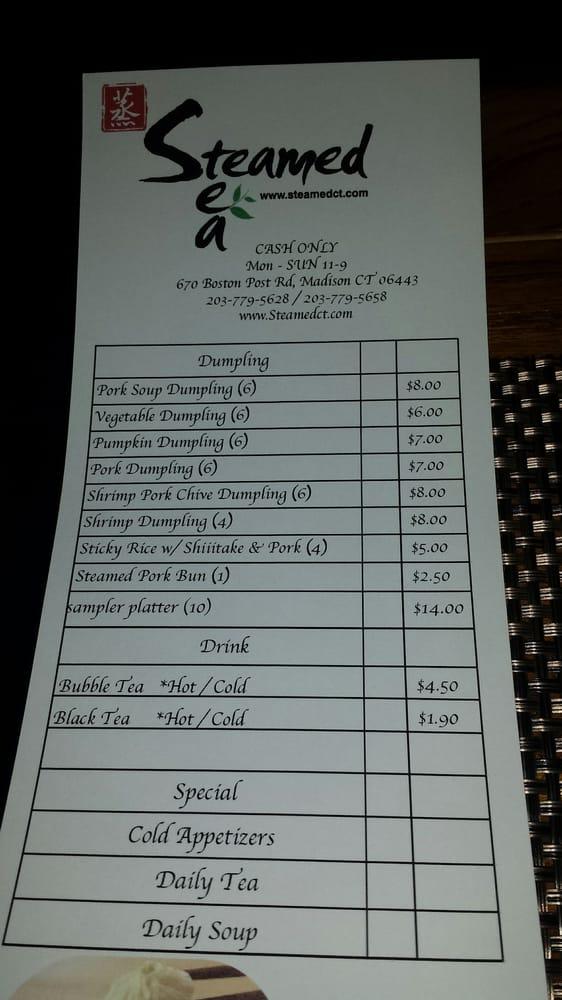 蒸
Steamed
Tea
www.steamedct.com
CASH ONLY
Mon - SUN 11-9
670 Boston Post Rd, Madison CT 06443
203-779-5628 / 203-779-5658
www.Steamedct.com
Dumpling
Pork Soup Dumpling (6) $8.00
Vegetable Dumpling (6) $6.00
Pumpkin Dumpling (6) $7.00
Pork Dumpling (6) $7.00
Shrimp Pork Chive Dumpling (6) $8.00
Shrimp Dumpling (4) $8.00
Sticky Rice w/ Shiiitake & Pork (4) $5.00
Steamed Pork Bun (1) $2.50
sampler platter (10) $14.00
Drink
Bubble Tea *Hot / Cold $4.50
Black Tea *Hot / Cold $1.90
Special
Cold Appetizers
Daily Tea
Daily Soup